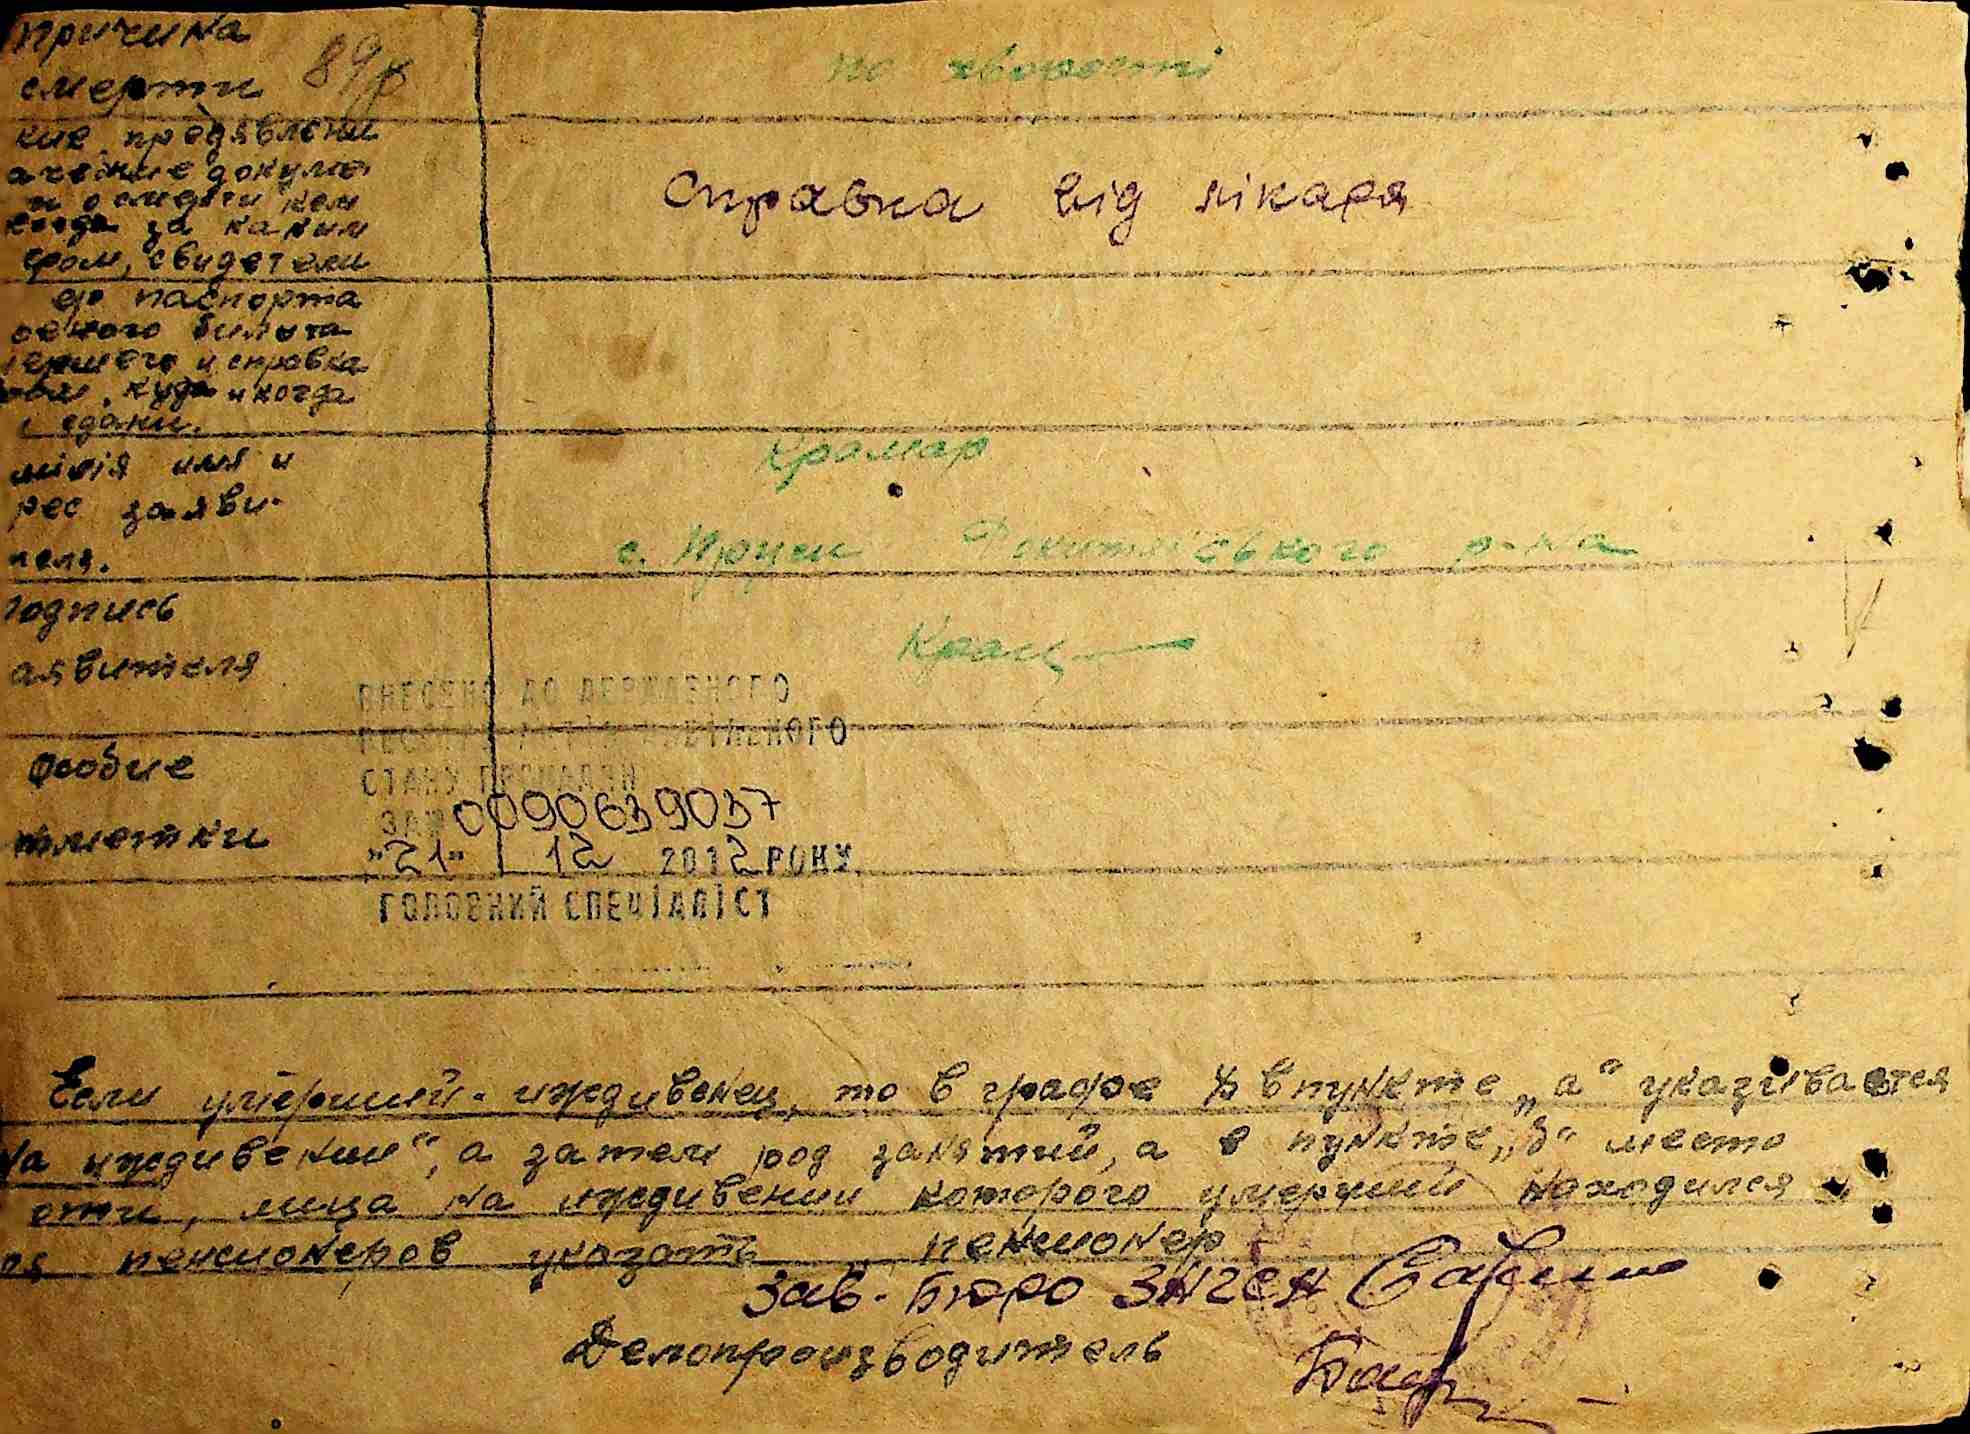 Причина
смерти 89р по хвороті
кие предявлени
ачение докуме
и о смерти кем
когда за каким
ером, свидетели
Справка від лікаря
ер паспорта
оенного билета
мершего и справка
куда и когда
сдани.
милія имя и
рес заяви-
теля.
Крамар
с. Пруси р-на
Подпись
аявителя
Крам
ВНЕСЕНО ДО ДЕРЖАВНОГО
РЕЄСТРУ АКТІВ ЦИВІЛЬНОГО
СТАНУ ГРОМАДЯН
ЗА № 0090639037
"21" 12 2012 РОКУ.
ГОЛОВНИЙ СПЕЦІАЛІСТ
Особие
тметки
Если умерший-иждивенец, то в графе в пункте „а" указивается
На иждивении", а затем род занятий, а в пункте „б" место
оти, лица на иждивении которого умерший находился
ля пенсионеров указать пенсионер
Зав. Бюро ЗАГСН
Делопроизводитель